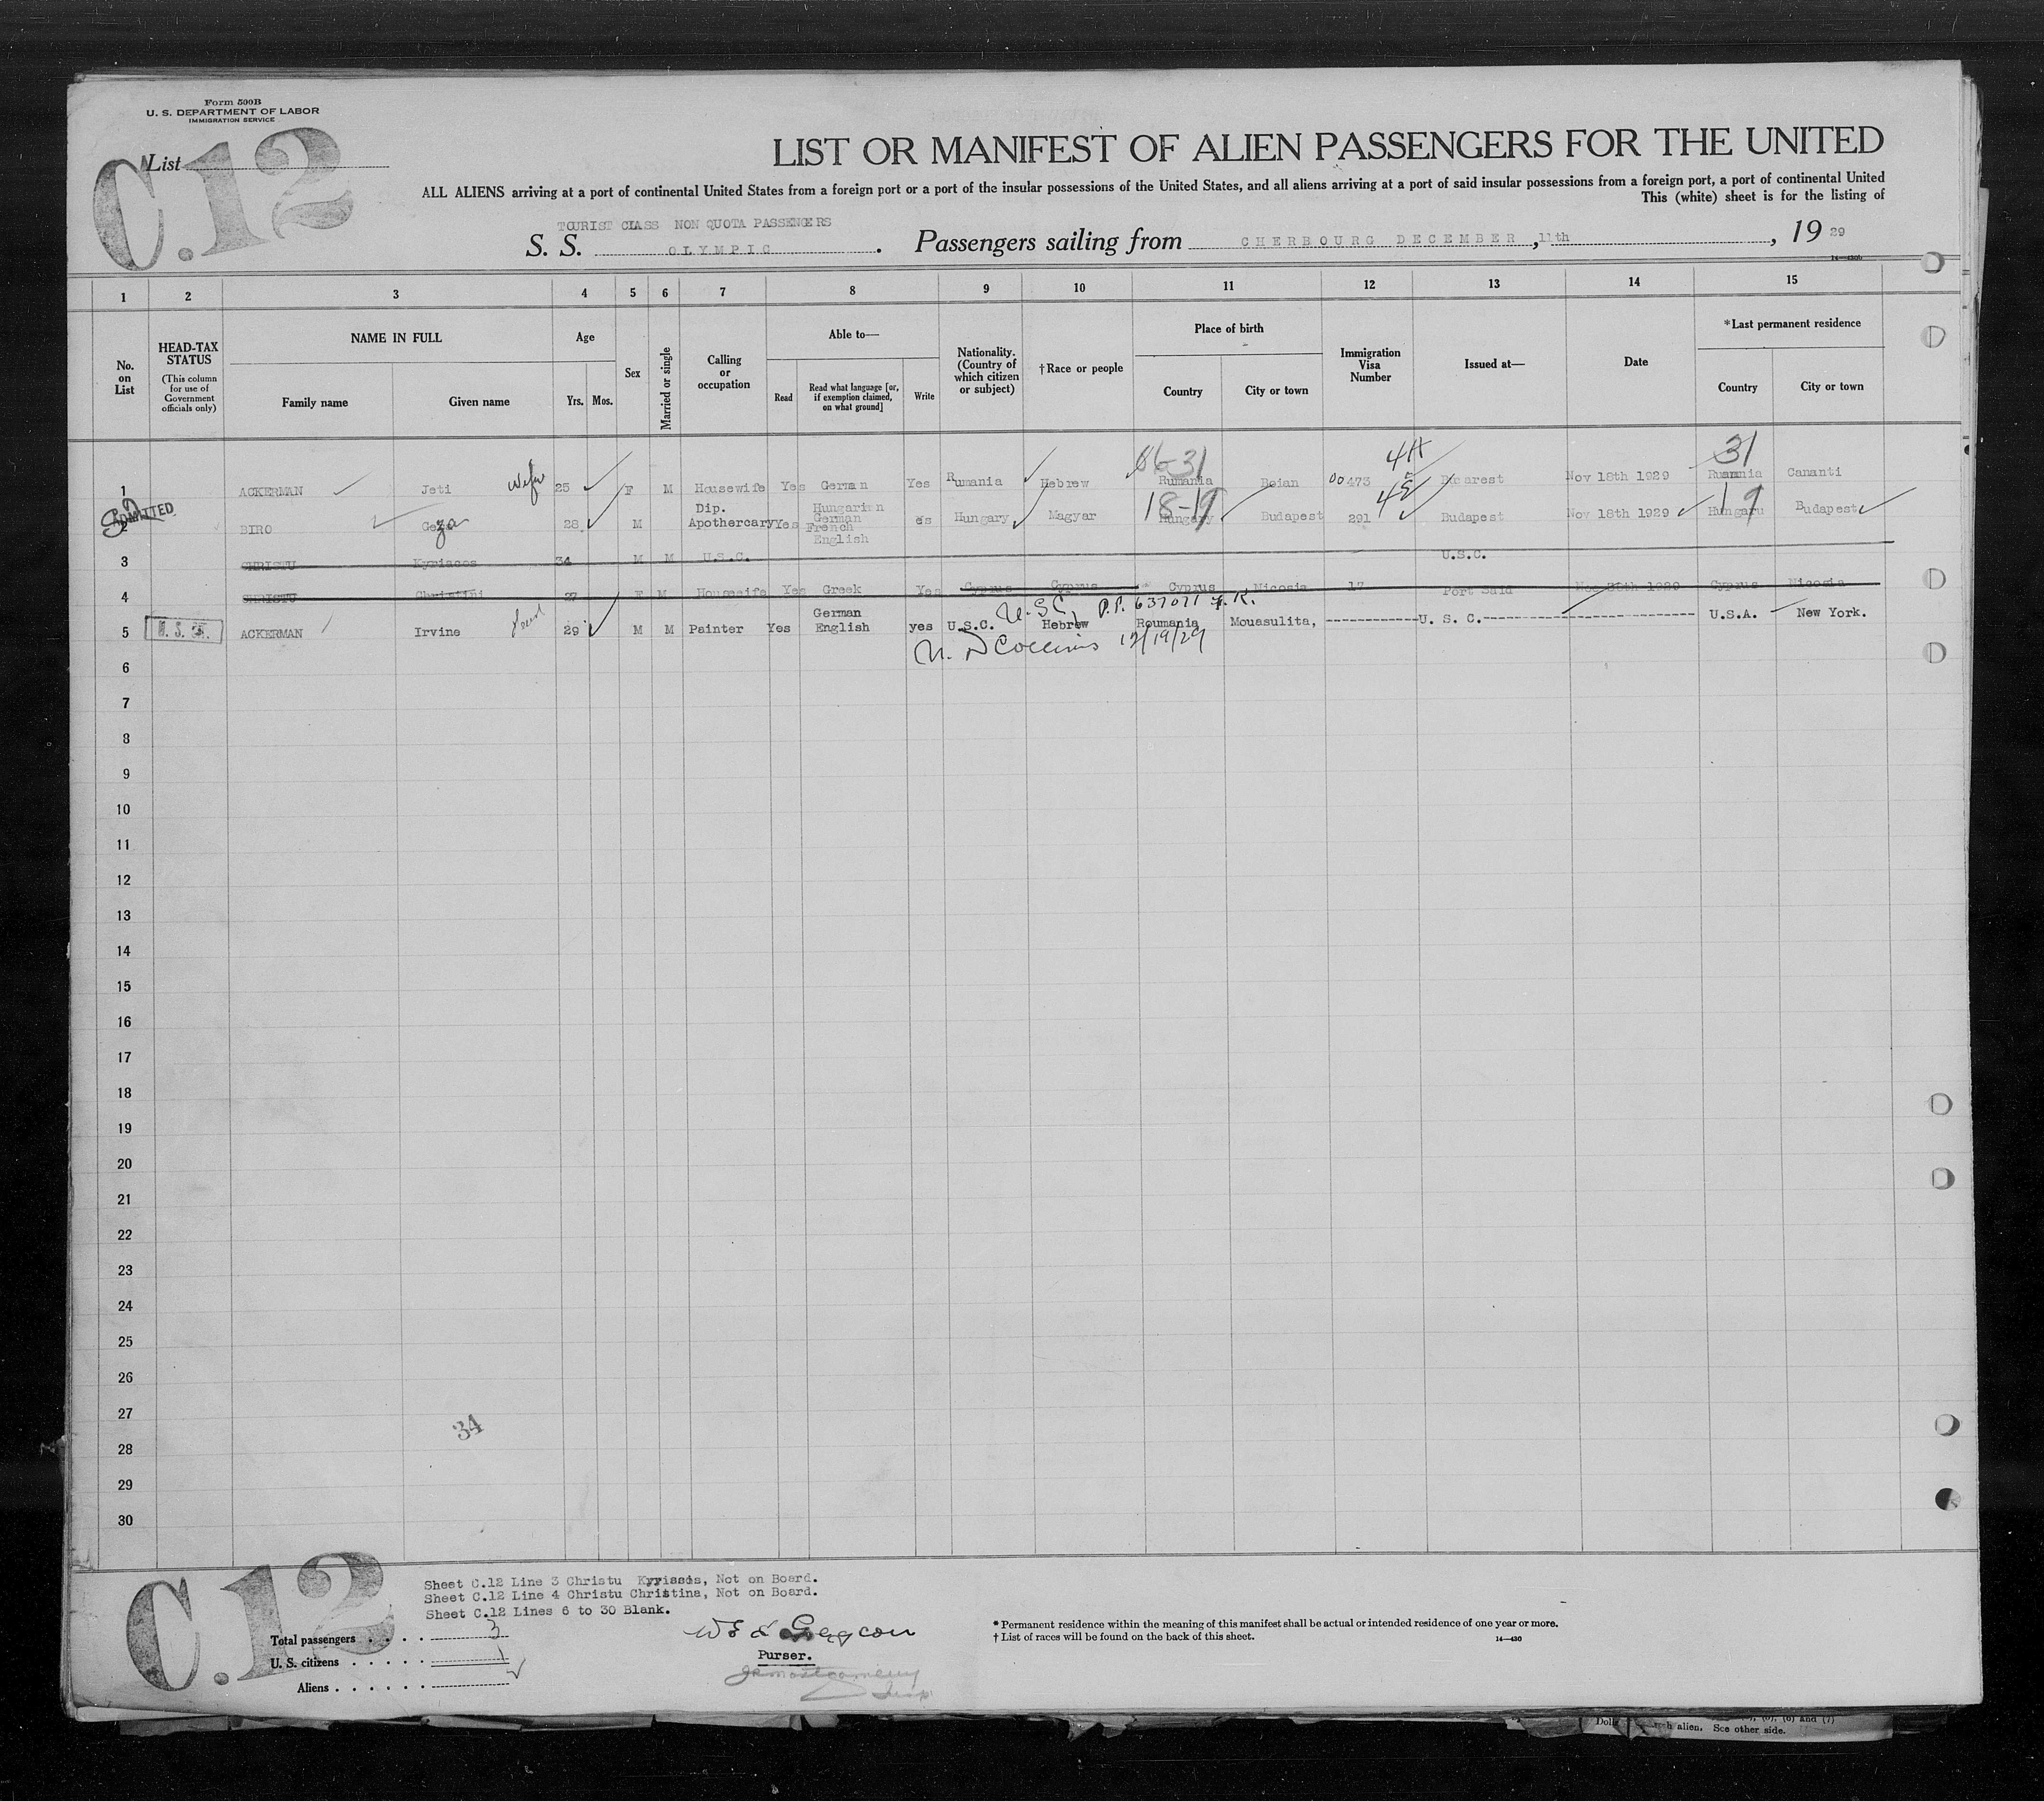 Form 500B
U. S. DEPARTMENT OF LABOR
IMMIGRATION SERVICE
List
C.12
LIST OR MANIFEST OF ALIEN PASSENGERS FOR THE UNITED
ALL ALIENS arriving at a port of continental United States from a foreign port or a port of the insular possessions of the United States, and all aliens arriving at a port of said insular possessions from a foreign port, a port of continental United
This (white) sheet is for the listing of
TOURIST CLASS NON QUOTA PASSENGERS
S. S. OLYMPIC. Passengers sailing from CHERBOURG DECEMBER, 11th, 19 29
1 2 3 4 5 6 7 8 9 10 11 12 13 14 15
No. on List
HEAD-TAX STATUS
(This column for use of Government officials only)
NAME IN FULL
Family name
Given name
Age
Yrs. Mos.
Sex
Married or single
Calling or occupation
Able to—
Read
Read what language [or, if exemption claimed, on what ground]
Write
Nationality. (Country of which citizen or subject)
†Race or people
Place of birth
Country
City or town
Immigration Visa Number
Issued at—
Date
*Last permanent residence
Country
City or town
4X 31
1 ACKERMAN Jeti wife 25 F M Housewife Yes German Yes Rumania Hebrew Rumania Boian 00473 Nov 18th 1929 Rumania Cananti
ADMITTED
2 BIRO Geza 28 M Dip. Apothecary Yes Hungarian German French English es Hungary Magyar 18-19 Hungary Budapest 291 Budapest Nov 18th 1929 19 Hungaru Budapest
3 CHRISTU Kyriacos 34 M M U.S.C. U.S.C.
4 CHRISTU Christini 27 F M Housewife Yes Greek Yes Cyprus Cyprus Cyprus Nicosia 17 Port Said 1929 Cyprus Nicosia
U.S.C. P.P. 637071
5 ACKERMAN Irvine 29 M M Painter Yes German English yes U.S.C. Hebrew Roumania Mouasulita, U. S. C. U.S.A. New York.
Collins 12/19/29
6
7
8
9
10
11
12
13
14
15
16
17
18
19
20
21
22
23
24
25
26
27
28
29
30
34
C.12
Sheet C.12 Line 3 Christu Kyriacos, Not on Board.
Sheet C.12 Line 4 Christu Christina, Not on Board.
Sheet C.12 Lines 6 to 30 Blank.
Total passengers . . . . 3
U. S. citizens . . . . . 1
Aliens . . . . . .
Purser.
* Permanent residence within the meaning of this manifest shall be actual or intended residence of one year or more.
† List of races will be found on the back of this sheet.
14—430
alien. See other side.